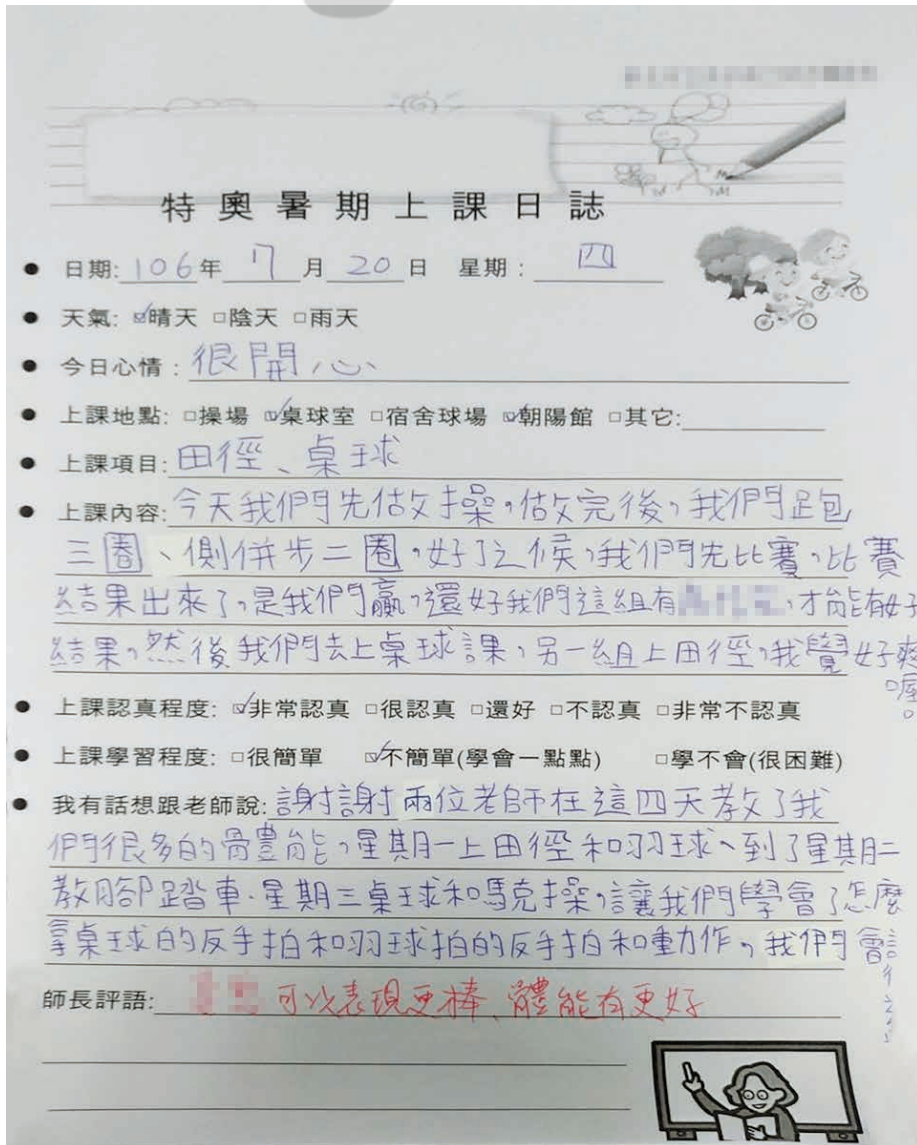 特奧暑期上課日誌
● 日期:106年 7月 20日 星期: 四
● 天氣: ☑晴天 □陰天 □雨天
● 今日心情: 很開心
● 上課地點: □操場 ☑桌球室 □宿舍球場 ☑朝陽館 □其它:
● 上課項目: 田徑、桌球
● 上課內容: 今天我們先做操,做完後,我們跑
三圈、側併步二圈,好了之候,我們先比賽,比賽
結果出來了,是我們贏,還好我們這組有,才能有好
結果,然後我們去上桌球課,另一組上田徑,我覺好爽
喔。
● 上課認真程度: ☑非常認真 □很認真 □還好 □不認真 □非常不認真
● 上課學習程度: □很簡單 ☑不簡單(學會一點點) □學不會(很困難)
● 我有話想跟老師說: 謝謝兩位老師在這四天教了我
們很多的體能,星期一上田徑和羽球、到了星期二
教腳踏車.星期三桌球和馬克操,讓我們學會了怎麼
拿桌球的反手拍和羽球拍的反手拍和動作,我們會
師長評語: 可以表現更棒、體能有更好